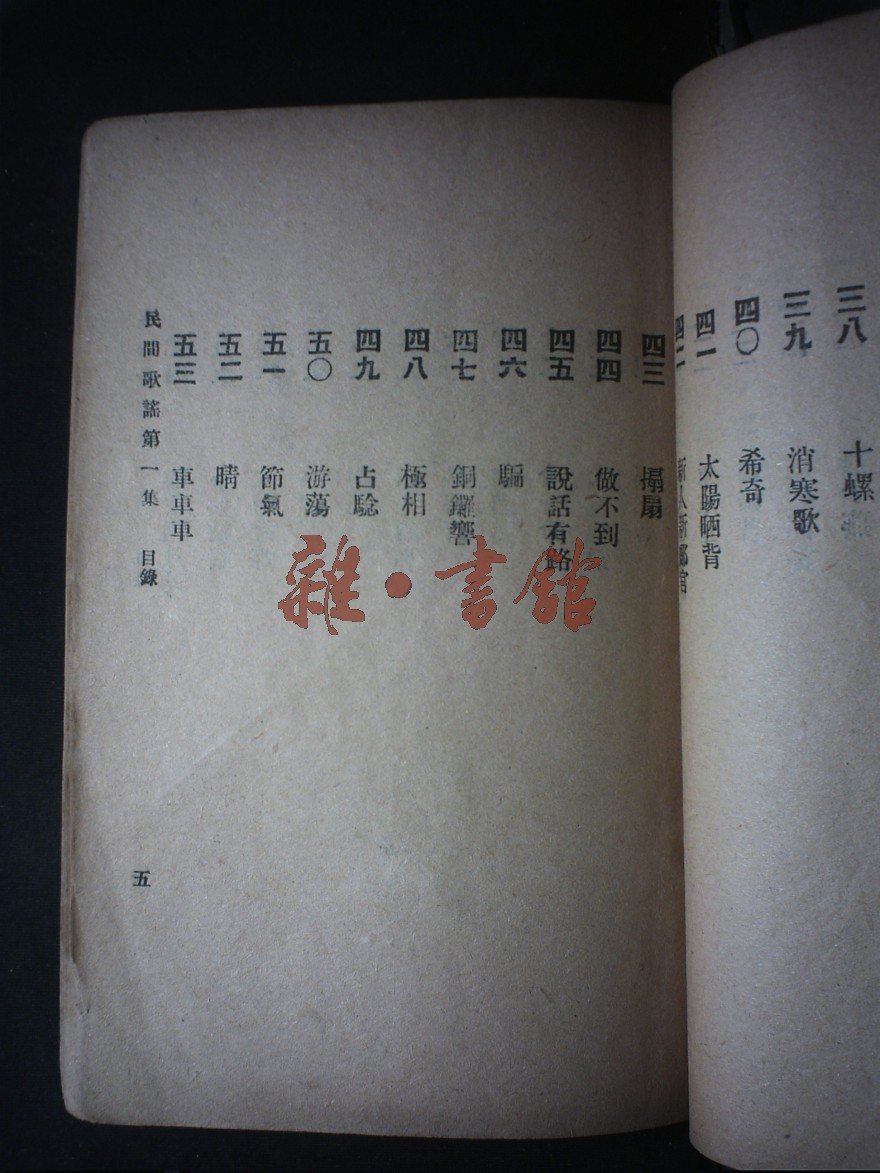 三八 十螺
三九 消寒歌
四〇 希奇
四一 太陽晒背
四二 新人新郎官
四三 搨扇
四四 做不到
四五 說話有路
四六 騙
四七 銅鑼響
四八 極相
四九 占騐
五〇 游蕩
五一 節氣
五二 晴
五三 車車車
民間歌謠第一集 目錄
五
雜·書館